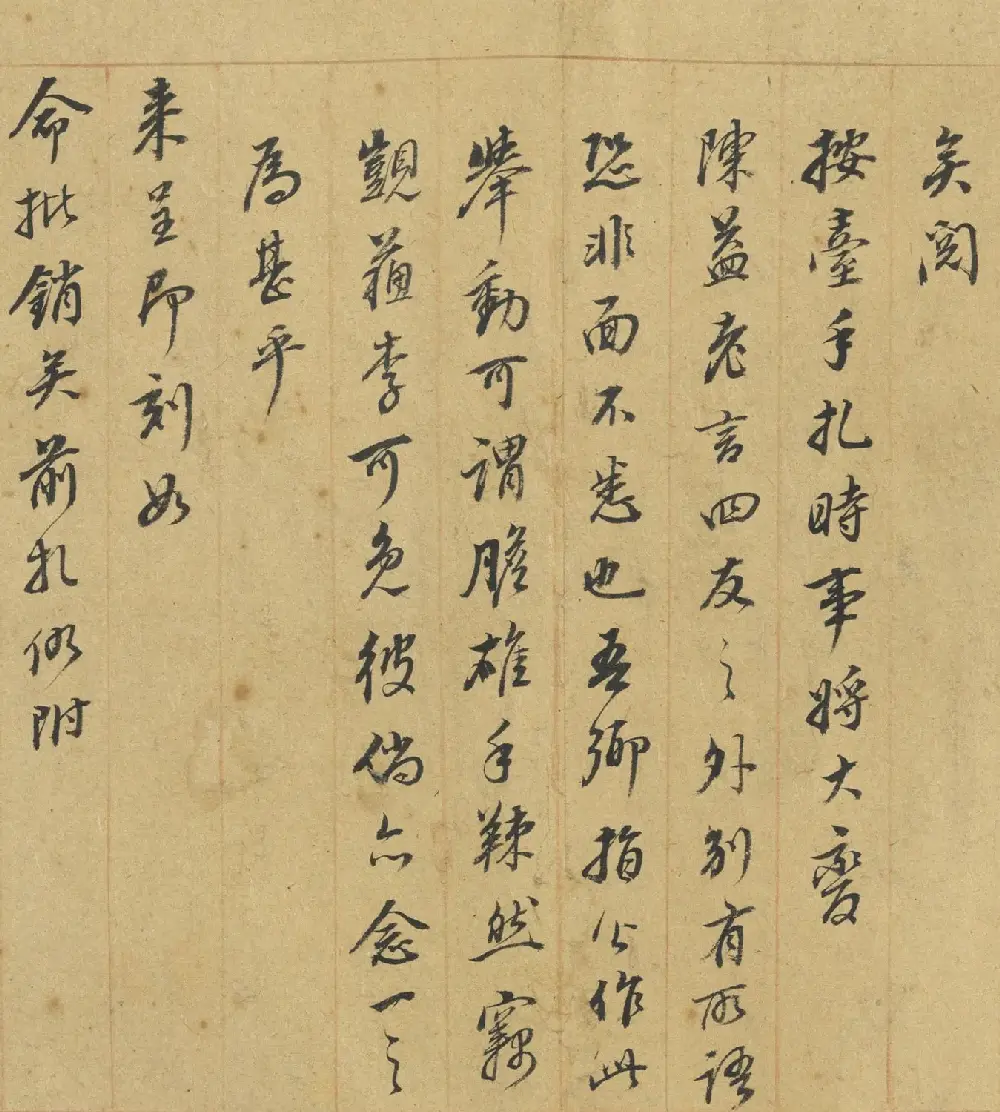 矣閱
按臺手扎時事將大變
陳益老言四友之外別有所語
恐非面不悉也吾鄉指公作此
舉動可謂膽雄手辣然竊
觀蘓李可免彼倘亦念一之
為甚乎
来呈即刻如
命批銷矣前扎仍附